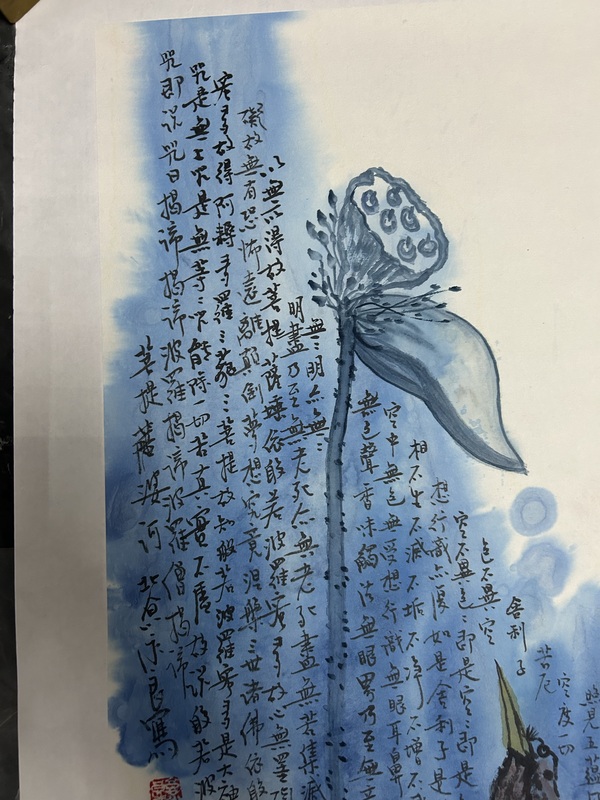 照見五蘊
空度一切
苦厄
舍利子
色不異空
空不異色〻即是空〻即是
想行識亦復如是舍利子是
相不生不滅不垢不淨不增不
空中無色無受想行識無眼耳鼻
無色聲香味觸法無眼界乃至無意
無〻明亦無〻
明盡乃至無老死亦無老死盡無苦集滅
以無所得故菩提薩埵依般若波羅蜜多故心無罣
礙故無有恐怖遠離顛倒夢想究竟涅槃三世諸佛依般
蜜多故得阿耨多羅三藐三菩提故知般若波羅蜜多是大神
咒是無上咒是無等〻咒能除一切苦真實不虛故說般若波
咒即說咒曰揭諦揭諦波羅揭諦波羅僧揭諦
菩提薩婆訶 寫